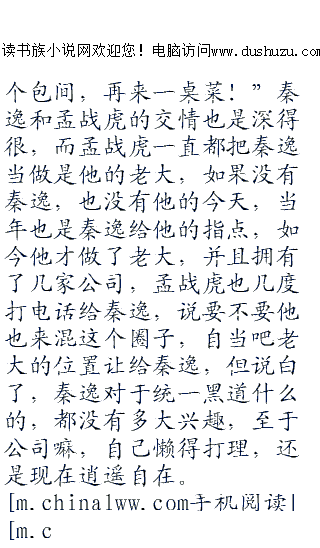 读书族小说网欢迎您！电脑访问www.dushuzu.com
个包间，再来一桌菜！”秦
逸和孟战虎的交情也是深得
很，而孟战虎一直都把秦逸
当做是他的老大，如果没有
秦逸，也没有他的今天，当
年也是秦逸给他的指点，如
今他才做了老大，并且拥有
了几家公司，孟战虎也几度
打电话给秦逸，说要不要他
也来混这个圈子，自当吧老
大的位置让给秦逸，但说白
了，秦逸对于统一黑道什么
的，都没有多大兴趣，至于
公司嘛，自己懒得打理，还
是现在逍遥自在。
[m.chinalww.com手机阅读|
[m.c